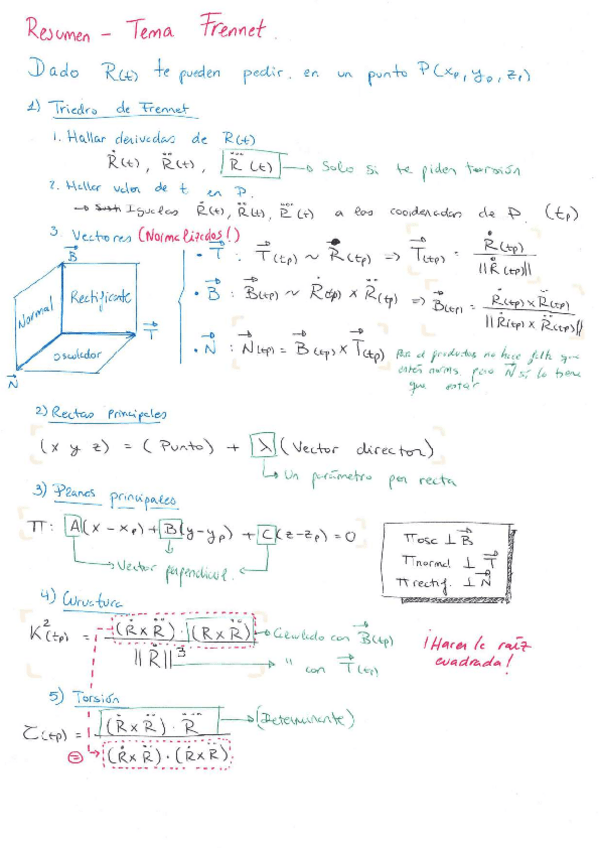 Resumen - Tema Frennet.
Dado R(t) te pueden pedir, en un punto P(xₚ, yₚ, zₚ)
1) Triedro de Frennet
1. Hallar derivadas de R(t)
Ṙ(t), R̈(t), R⃛(t) → Solo si te piden torsión
2. Hallar valor de t en P.
→ Igualas Ṙ(t), R̈(t), R⃛(t) a las coordenadas de P. (tp)
3. Vectores (Normalizados!)
B⃗
Normal
Rectificante
Osculador
T⃗
N⃗
• T⃗ : T⃗(tp) ~ Ṙ(tp) => T⃗(tp) = Ṙ(tp) / ||Ṙ(tp)||
• B⃗ : B⃗(tp) ~ Ṙ(tp) x R̈(tp) => B⃗(tp) = Ṙ(tp) x R̈(tp) / ||Ṙ(tp) x R̈(tp)||
• N⃗ : N⃗(tp) = B⃗(tp) x T⃗(tp)
Para el productos no hace falta que
estén norms, pero N⃗ sí lo tiene
que estar
2) Rectas principales
(x y z) = (Punto) + λ (Vector director)
↳ Un parámetro por recta
3) Planos principales
π: A(x - xp) + B(y - yp) + C(z - zp) = 0
→ Vector perpendicul.
π osc ⊥ B⃗
π normal ⊥ T⃗
π rectif. ⊥ N⃗
4) Curvatura
K²(tp) = (Ṙ x R̈) · (Ṙ x R̈) / ||Ṙ||³
→ Calculado con B⃗(tp)
→ " con T⃗(tp)
¡Hacer la raíz
cuadrada!
5) Torsión
τ(tp) = (Ṙ x R̈) · R⃛ / (Ṙ x R̈) · (Ṙ x R̈)
→ (Determinante)
=